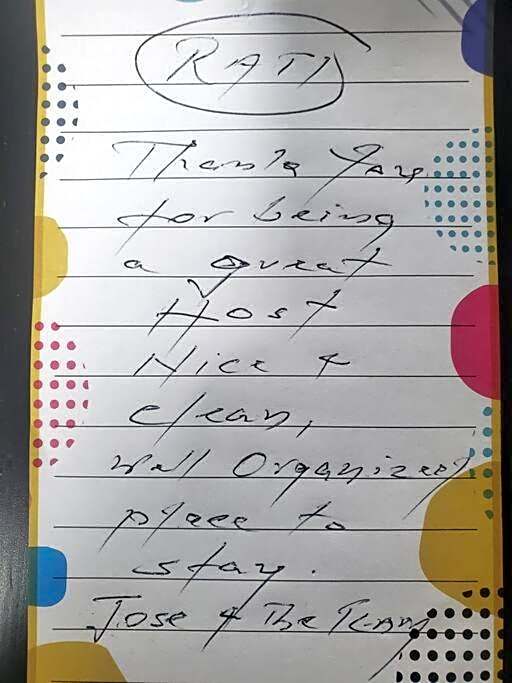 RATI
Thanks You
for being
a great
Host
Nice &
clean,
Well Organized
place to
stay.
Jose & The Team